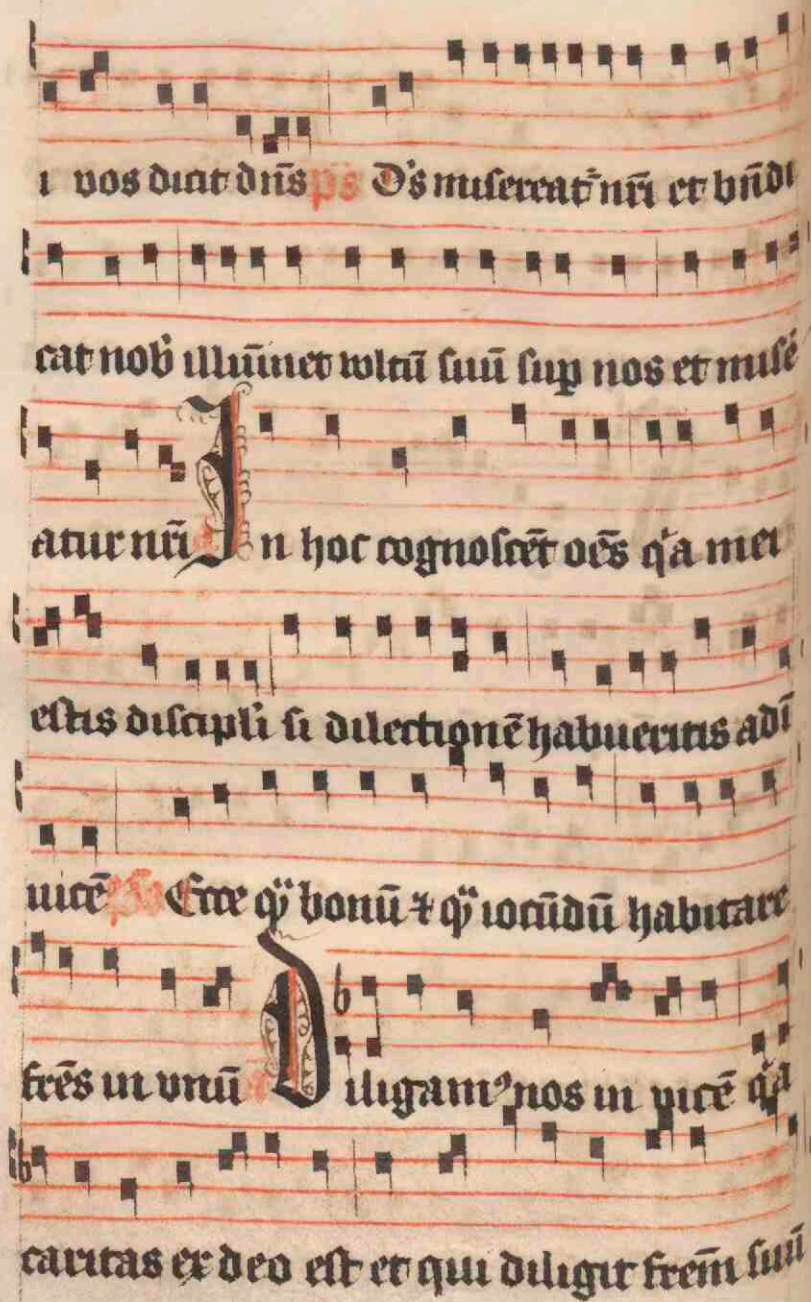 i vos dicit dn̄s ps D's misereat᷑ nr̄i et bn̄di
cat nob̛ illūinet wltū suū sup̱ nos et misē
atur nr̄i a In hoc cognoscēt oēs q̛a mei
estis discipl̛i si dilectionē habueritis adī
uicē ps Ecce q̄ bonū ⁊ q̄ iocūdū habitare
fr̄es in vnū a Diligamꝰ nos in vicē q̛a
caritas ex deo est et qui diligit frēm suū